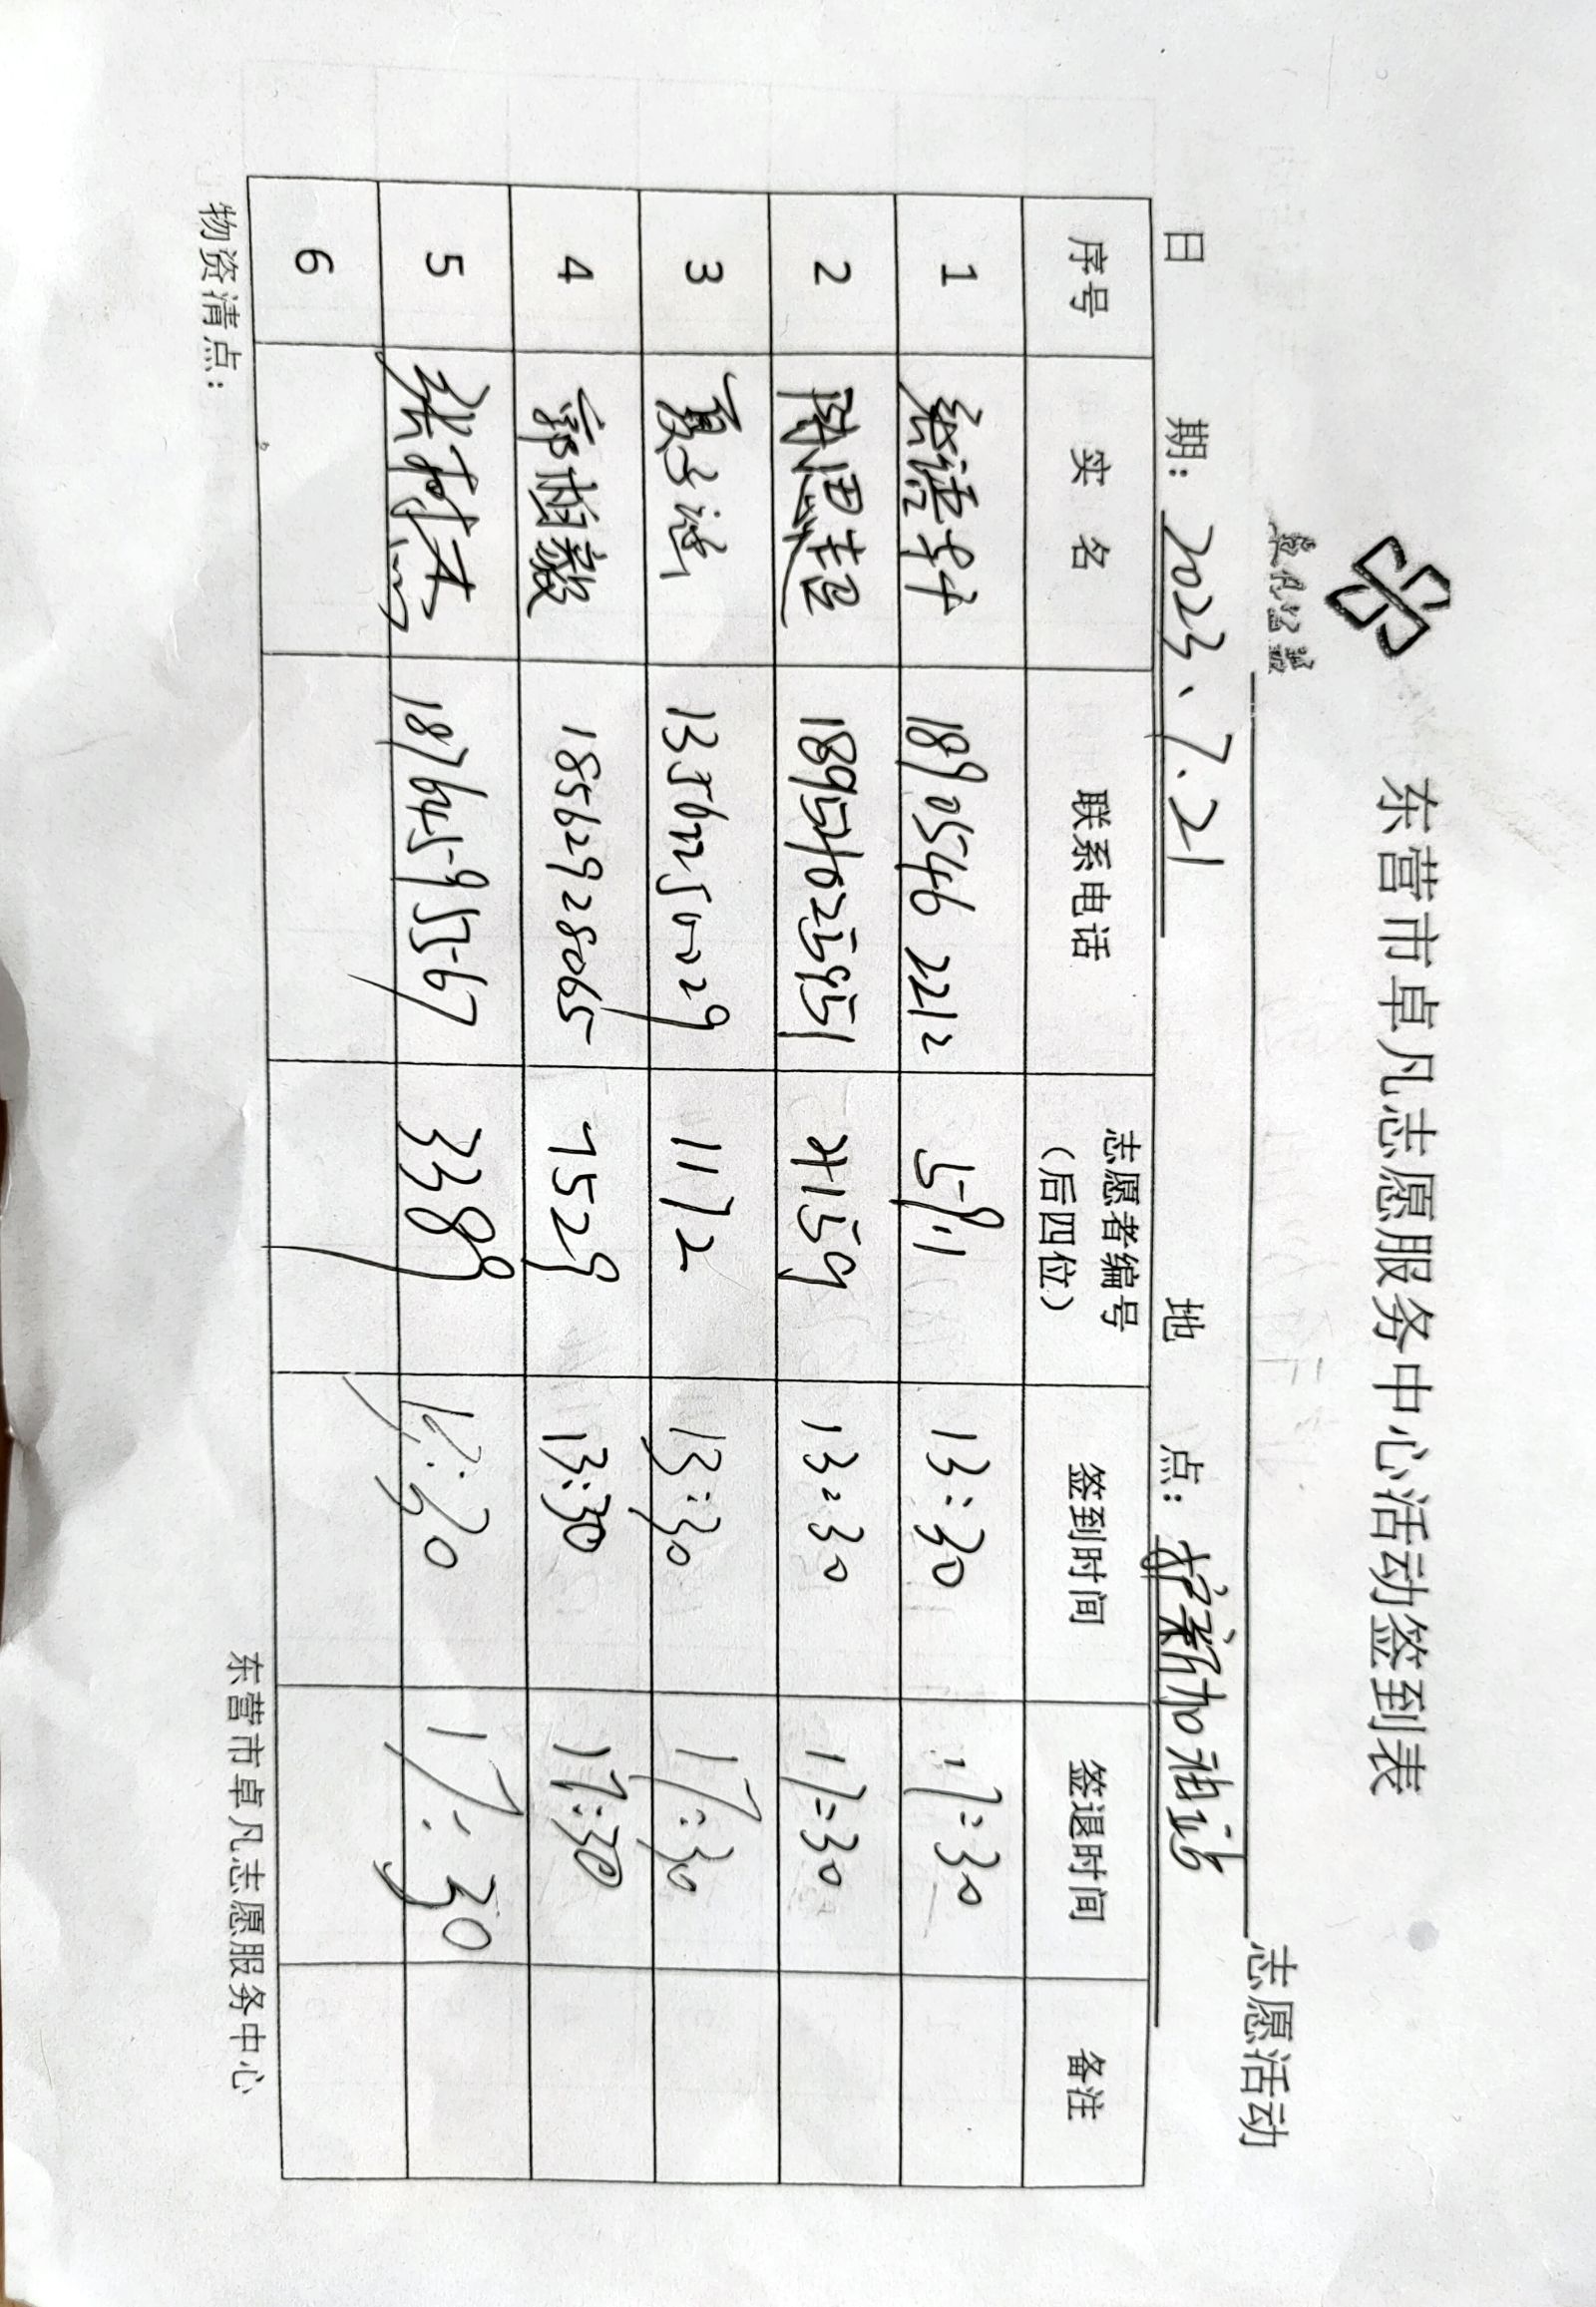 东营市卓凡志愿服务中心活动签到表
卓凡公益
志愿活动
日 期: 2023、7.21 地 点: 护新加油站
序号 实 名 联系电话 志愿者编号（后四位） 签到时间 签退时间 备注
1 18905462212 13:30 17:30
2 陈思芸 18954025951 13:30 17:30
3 夏子涟 13562250029 1172 13:30 17:30
4 郭樹毅 18562928065 7529 13:30 17:30
5 张树杰 18764595567 3389 17:30
6
物资清点: 东营市卓凡志愿服务中心